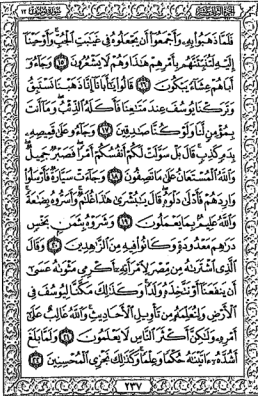 فَلَمَّا ذَهَبُوا۟ بِهِۦ وَأَجْمَعُوٓا۟ أَن يَجْعَلُوهُ فِى غَيَٰبَتِ ٱلْجُبِّ وَأَوْحَيْنَآ
إِلَيْهِ لَتُنَبِّئَنَّهُم بِأَمْرِهِمْ هَٰذَا وَهُمْ لَا يَشْعُرُونَ ﴿١٥﴾ وَجَآءُوٓ
أَبَاهُمْ عِشَآءً يَبْكُونَ ﴿١٦﴾ قَالُوا۟ يَٰٓأَبَانَآ إِنَّا ذَهَبْنَا نَسْتَبِقُ
وَتَرَكْنَا يُوسُفَ عِندَ مَتَٰعِنَا فَأَكَلَهُ ٱلذِّئْبُ وَمَآ أَنتَ
بِمُؤْمِنٍ لَّنَا وَلَوْ كُنَّا صَٰدِقِينَ ﴿١٧﴾ وَجَآءُو عَلَىٰ قَمِيصِهِۦ
بِدَمٍ كَذِبٍ قَالَ بَلْ سَوَّلَتْ لَكُمْ أَنفُسُكُمْ أَمْرًا فَصَبْرٌ جَمِيلٌ
وَٱللَّهُ ٱلْمُسْتَعَانُ عَلَىٰ مَا تَصِفُونَ ﴿١٨﴾ وَجَآءَتْ سَيَّارَةٌ فَأَرْسَلُوا۟
وَارِدَهُمْ فَأَدْلَىٰ دَلْوَهُۥ قَالَ يَٰبُشْرَىٰ هَٰذَا غُلَٰمٌ وَأَسَرُّوهُ بِضَٰعَةً
وَٱللَّهُ عَلِيمٌۢ بِمَا يَعْمَلُونَ ﴿١٩﴾ وَشَرَوْهُ بِثَمَنٍۭ بَخْسٍ
دَرَٰهِمَ مَعْدُودَةٍ وَكَانُوا۟ فِيهِ مِنَ ٱلزَّٰهِدِينَ ﴿٢٠﴾ وَقَالَ
ٱلَّذِى ٱشْتَرَىٰهُ مِن مِّصْرَ لِٱمْرَأَتِهِۦٓ أَكْرِمِى مَثْوَىٰهُ عَسَىٰٓ
أَن يَنفَعَنَآ أَوْ نَتَّخِذَهُۥ وَلَدًا وَكَذَٰلِكَ مَكَّنَّا لِيُوسُفَ فِى
ٱلْأَرْضِ وَلِنُعَلِّمَهُۥ مِن تَأْوِيلِ ٱلْأَحَادِيثِ وَٱللَّهُ غَالِبٌ عَلَىٰٓ
أَمْرِهِۦ وَلَٰكِنَّ أَكْثَرَ ٱلنَّاسِ لَا يَعْلَمُونَ ﴿٢١﴾ وَلَمَّا بَلَغَ
أَشُدَّهُۥٓ ءَاتَيْنَٰهُ حُكْمًا وَعِلْمًا وَكَذَٰلِكَ نَجْزِى ٱلْمُحْسِنِينَ ﴿٢٢﴾
٢٣٧